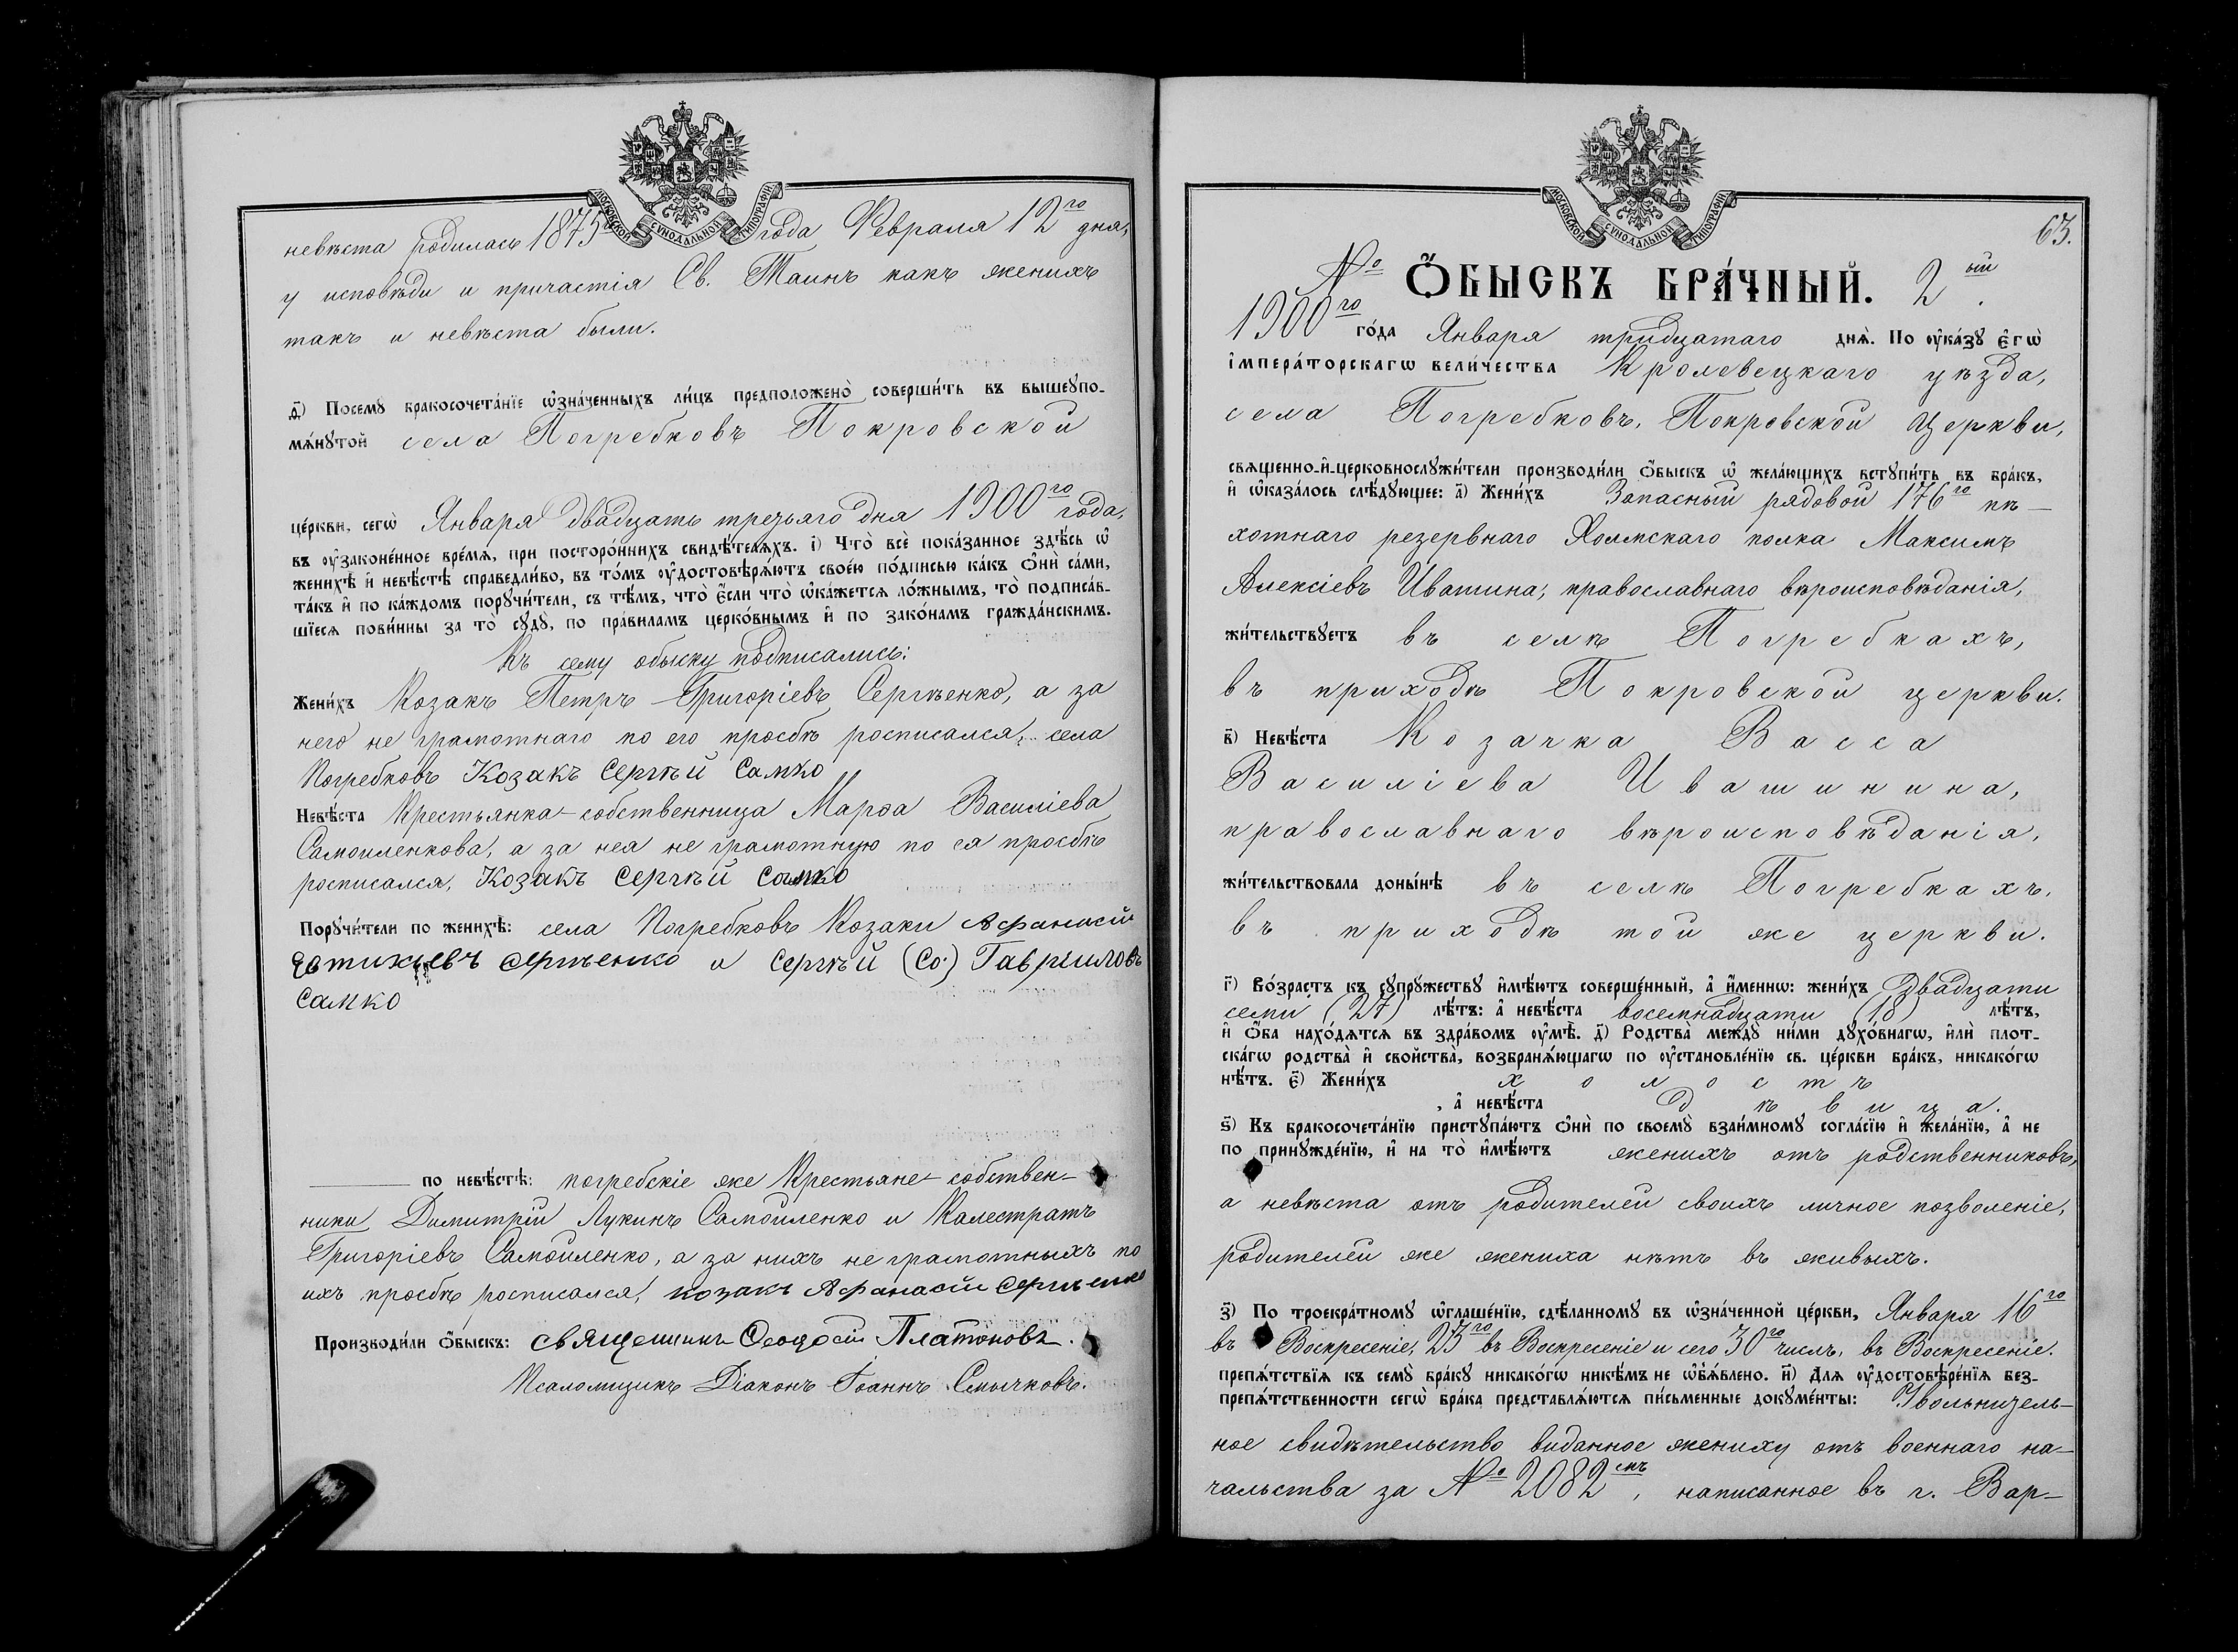 МОСКОВСКОЙ СѴНОДАЛЬНОЙ ТИПОГРАФІИ
невѣста родилась 1875 года Февраля 12го дня,
у исповѣди и причастія Св. Таинъ какъ женихъ
такъ и невѣста были.
д҃) Посемꙋ бракосочета́нїе ѡ҆зна́ченныхъ ли́цъ предположено̀ соверши́ть въ вышеꙋпо-
мѧ́нꙋтой села Погребковъ Покровской
це́ркви, сегѡ̀ Января двадцать третьяго дня 1900го года,
въ ᲂу҆законе́нное вре́мѧ, при посторо́ннихъ свидѣ́телѧхъ. і҃) Что̀ всѐ пока́занное здѣ́сь ѡ҆
женихѣ̀ и҆ невѣ́стѣ справедли́во, въ то́мъ ᲂу҆достовѣрѧ́ютъ свое́ю по́дписью ка́къ ѻ҆нѝ са́ми,
та́къ и҆ по ка́ждомъ порꙋчи́тели, съ тѣ́мъ, что̀ є҆́сли что̀ ѡ҆ка́жетсѧ ло́жнымъ, то̀ подписа́в-
шїесѧ пови́нны за то̀ сꙋдꙋ̀, по пра́виламъ церко́внымъ и҆ по зако́намъ гражда́нскимъ.
Къ сему обыску подписались:
Жени́хъ Козакъ Петръ Григоріевъ Сергѣенко, а за
него не грамотнаго по его просбѣ росписался, села
Погребковъ Козакъ Сергѣй Самко
Невѣ́ста Крестьянка-собственница Марѳа Василіева
Самоиленкова, а за нея не грамотную по ея просбѣ
росписался, Козакъ Сергѣй Самко
Порꙋчи́тели по женихѣ̀: села Погребковъ Козаки Афанасій
Евтихіевъ Сергѣенко и Сергѣй (Со.) Гавриловъ
Самко
по невѣ́стѣ: погребскіе же Крестьяне-собствен-
ники Димитрій Лукинъ Самойленко и Калестратъ
Григоріевъ Самойленко, а за нихъ не грамотныхъ по
ихъ просбѣ росписался, козакъ Афанасій Сергѣенко
Производи́ли ѻ҆́быскъ: священникъ Ѳеодосій Платоновъ.
Псаломщикъ Діаконъ Іоаннъ Смычковъ.
МОСКОВСКОЙ СѴНОДАЛЬНОЙ ТИПОГРАФІИ
63.
№ Ѻ҆́БЫСКЪ БРА́ЧНЫЙ. 2ый.
1900го го́да Января тридцатаго днѧ̀. По ᲂу҆ка́зꙋ є҆гѡ̀
і҆мпера́торскагѡ вели́чества Кролевецкаго уѣзда,
села Погребковъ, Покровской Церкви,
свѧщенно-и҆-церковнослꙋжи́тели производи́ли ѻ҆́быскъ ѡ҆ жела́ющихъ встꙋпи́ть въ бра́къ,
и҆ ѡ҆каза́лось слѣ́дꙋющее: а҃) Жени́хъ Запасный рядовой 176го пѣ-
хотнаго резервнаго Холмскаго полка Максимъ
Алексіевъ Ивашина, православнаго вѣроисповѣданія,
жи́тельствꙋетъ въ селѣ Погребкахъ,
въ приходѣ Покровской церкви.
в҃) Невѣ́ста Козачка Васса
Василіева Ивашинина,
православнаго вѣроисповѣданія,
жи́тельствовала доны́нѣ въ селѣ Погребкахъ,
въ приходѣ той же церкви.
г҃) Во́зрастъ къ сꙋпрꙋжествꙋ и҆мѣ́ютъ соверше́нный, а҆ и҆́меннѡ: жени́хъ двадцати
семи (27) лѣ́тъ: а҆ невѣ́ста восемнадцати (18) лѣ́тъ,
и҆ ѻ҆́ба нахо́дѧтсѧ въ здра́вомъ ᲂу҆мѣ̀. д҃) Родства̀ междꙋ̀ ни́ми дꙋхо́внагѡ, и҆лѝ плот-
ска́гѡ родства̀ и҆ свойства̀, возбранѧ́ющагѡ по ᲂу҆становле́нїю св. це́ркви бра́къ, никако́гѡ
нѣ́тъ. є҃) Жени́хъ холостъ
, а҆ невѣ́ста дѣвица.
ѕ҃) Къ бракосочета́нїю пристꙋпа́ютъ ѻ҆нѝ по своемꙋ̀ взаи́мномꙋ согла́сїю и҆ жела́нїю, а҆ не
по принꙋжде́нїю, и҆ на то̀ и҆мѣ́ютъ женихъ отъ родственниковъ,
а невѣста отъ родителей своихъ личное позволеніе,
родителей же жениха нѣтъ въ живыхъ.
з҃) По троекра́тномꙋ ѡ҆глаше́нїю, сдѣ́ланномꙋ въ ѡ҆зна́ченной це́ркви, Января 16го
въ Воскресеніе, 23го въ Воскресеніе и сего 30го числъ, въ Воскресеніе.
препѧ́тствїѧ къ семꙋ̀ бра́кꙋ никако́гѡ никѣ́мъ не ѡ҆б̾ѧ́влено. и҃) Длѧ ᲂу҆достовѣре́нїѧ без-
препѧ́тственности сегѡ̀ бра́ка представлѧ́ютсѧ пи́сьменные докꙋме́нты: Увольнитель-
ное свидѣтельство виданное жениху отъ военнаго на-
чальства за № 2082емъ, написанное въ г. Вар-